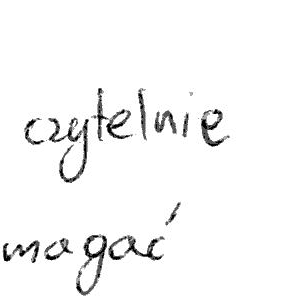 czytelnie
magać